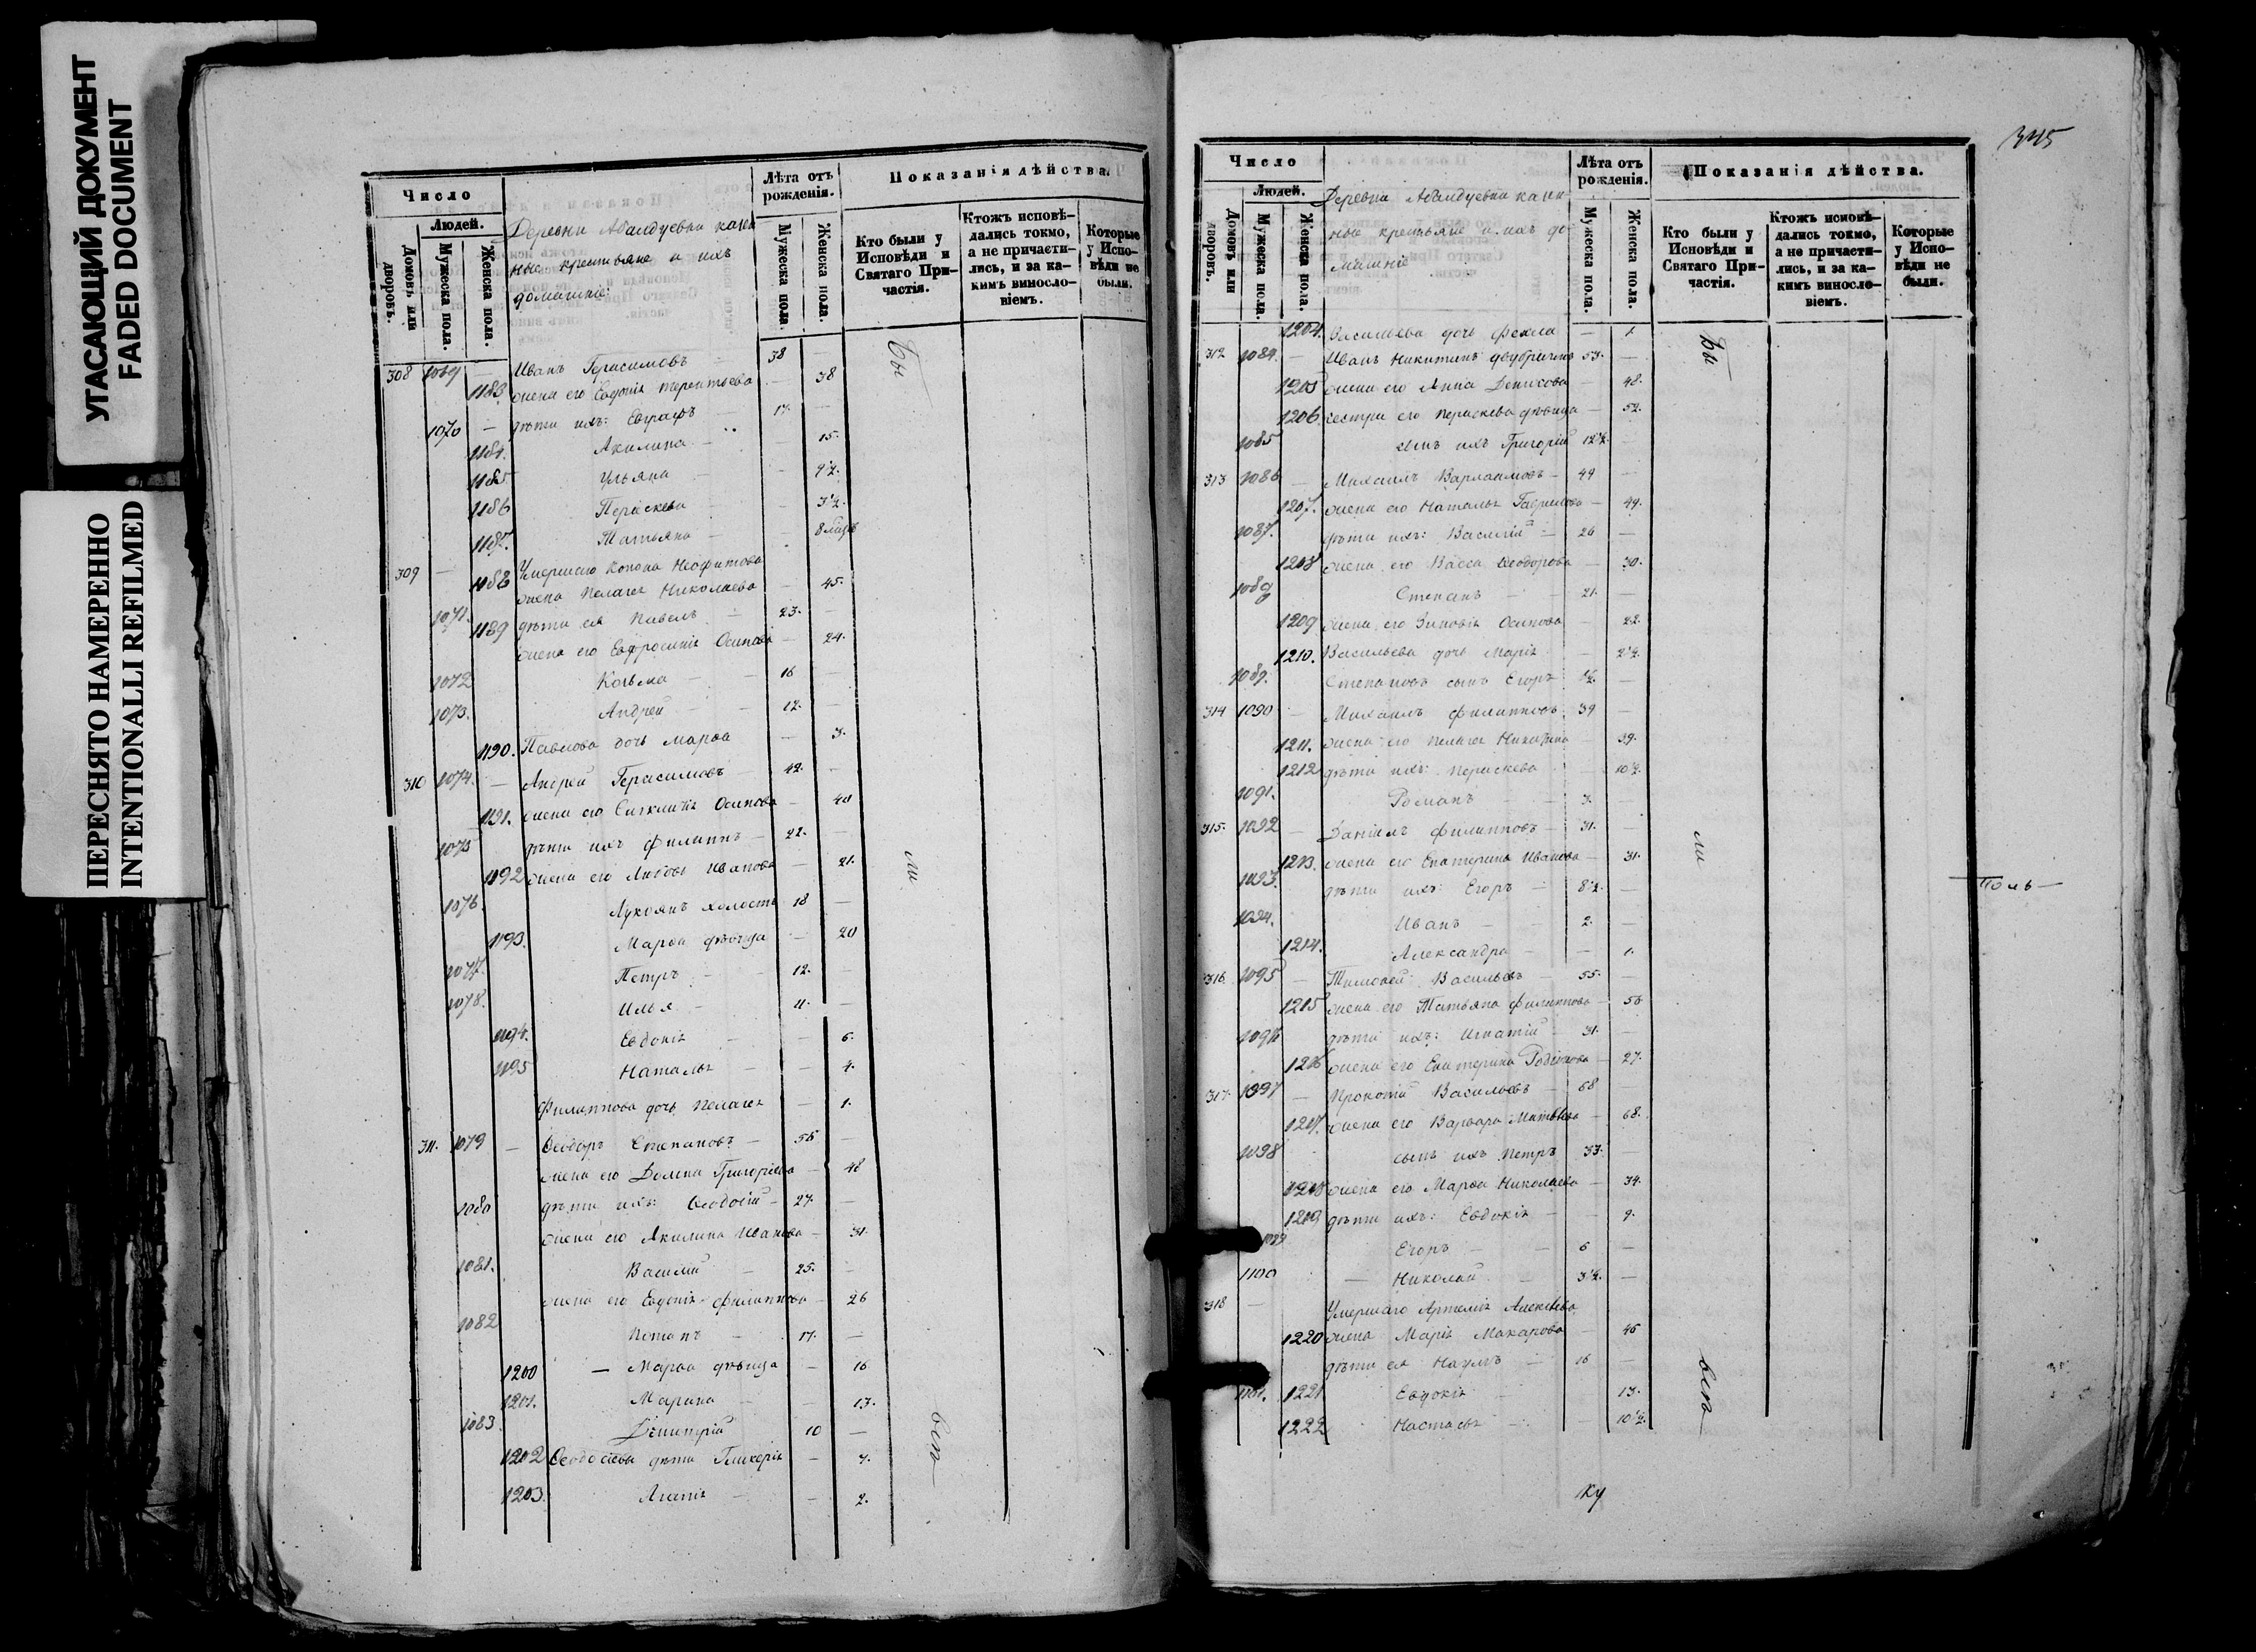 УГАСАЮЩИЙ ДОКУМЕНТ
FADED DOCUMENT
ПЕРЕСНЯТО НАМЕРЕННО
INTENTIONALLI REFILMED
Число
Людей.
Домовъ или дворовъ.
Мужеска пола.
Женска пола.
Деревни Абалдуевки казен
ные крестьяне и ихъ
домашніе:
Лѣта отъ рожденія.
Мужеска пола.
Женска пола.
Показанія дѣйства.
Кто были у Исповѣди и Святаго Причастія.
Ктожъ исповѣдались токмо, а не причастились, и за какимъ винословіемъ.
Которые у Исповѣди не были.
308 1069 — Иванъ Герасимовъ 38 —
1183 жена его Евдокія Терентьева — 38
1070 — дѣти ихъ: Евграфъ 17. —
1184. Акилина — 15.
1185 Ульяна — 9½.
1186 Параскева — 3½.
1187. Татьяна — 8 мѣсяц
309 — Умершаго Конона Неофитова
1188 жена Пелагея Николаева — 45.
1071. дѣти ея Павелъ — 23. —
1189 жена его Евфросинія Осипова — 24.
1072 Козьма — 16
1073. Андрей — 12. —
1190. Павлова дочь Марѳа — 3.
310 1074. — Андрей Герасимовъ — 42. —
1191. жена его Синклитія Осипова — 40
1075 дѣти ихъ Филиппъ — 22. —
1192 жена его Любовь Иванова — 21.
1076. Лукоянъ холостъ 18 —
1193. Марѳа дѣвица — 20
1077. Петръ — 12. —
1078. Илья — 11. —
1194. Евдокія — 6.
1195 Наталья — 4.
Филиппова дочь Пелагея — 1.
311. 1079 — Ѳеодоръ Степановъ — 55 —
жена его Домна Григорьева — 48
1080 дѣти ихъ: Ѳеодосій — 27. —
жена его Акилина Иванова — 31.
1081. Василій — 25. —
жена его Евдокія Филиппова — 26
1082 Потапъ — 17. —
1200 — Марѳа дѣвица — 16
1201. Марина — 13.
1083 Димитрій 10 —
1202 Ѳеодосіевы дѣти Гликерія — 7.
1203. Агапія — 2.
Бы
ли
всѣ
345
Число
Людей.
Домовъ или дворовъ.
Мужеска пола.
Женска пола.
Деревни Абалдуевки казен
ные крестьяне и ихъ до
машніе
Лѣта отъ рожденія.
Мужеска пола.
Женска пола.
Показанія дѣйства.
Кто были у Исповѣди и Святаго Причастія.
Ктожъ исповѣдались токмо, а не причастились, и за какимъ винословіемъ.
Которые у Исповѣди не были.
1204. Васильева дочь Фекла — 1.
312 1084. — Иванъ Никитинъ 53. —
1205 жена его Анна Денисова — 48.
1206. сестра его Параскева дѣвица — 52.
1085 сынъ ихъ Григорій 12½. —
313 1086 — Михаилъ Варлаамовъ — 49 —
1207. жена его Наталья Гаврилова — 49.
1087. дѣти ихъ: Василій — 26 —
1208 жена его Васса Ѳеодорова — 30.
1088 Степанъ — 21. —
1209 жена его Зиновія Осипова — 22.
1210. Васильева дочь Марія — 2½.
1089. Степановъ сынъ Егоръ ½. —
314 1090 — Михаилъ Филипповъ 39 —
1211. жена его Пелагея Никитина — 39.
1212 дѣти ихъ: Параскева — 10½.
1091. Романъ — 3. —
315. 1092 — Даніилъ Филипповъ — 31. —
1213. жена его Екатерина Иванова — 31.
1093. дѣти ихъ: Егоръ — 8½. —
1094. Иванъ — 2. —
1214. Александра — 1.
316 1095 — Тимоѳей Васильевъ — 55. —
1215 жена его Татьяна Филиппова — 56
1096 дѣти ихъ: Игнатій — 31. —
1216 жена его Екатерина Родіонова — 27.
317. 1097 — Прокопій Васильевъ — 68 —
1217. жена его Варвара Матвѣева — 68.
1098 сынъ ихъ Петръ 33. —
1218 жена его Марѳа Николаева — 34.
1219 дѣти ихъ: Евдокія — 9.
1099 Егоръ — 6 —
1100 — Николай — 3½. —
318 — Умершаго Артемія Алексѣева
1220 жена Марія Макарова — 46
дѣти ея Наумъ — 16 —
1101. 1221 Евдокія — 13.
1222 Настасья — 10½.
Бы
ли
всѣ